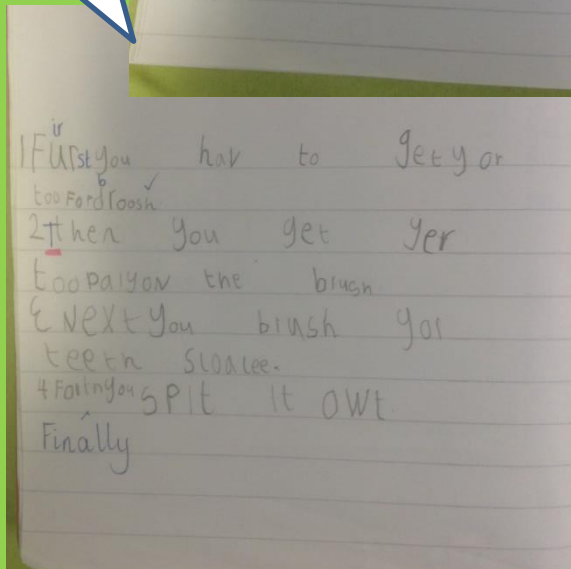 ir
1 Furst you hav to get yor
b ✓
too Fordroosh
2 Then you get yer
too palyon the brush
3 Next you brush yor
teeth sloalee.
4 Forth you spit it owt
^
Finally